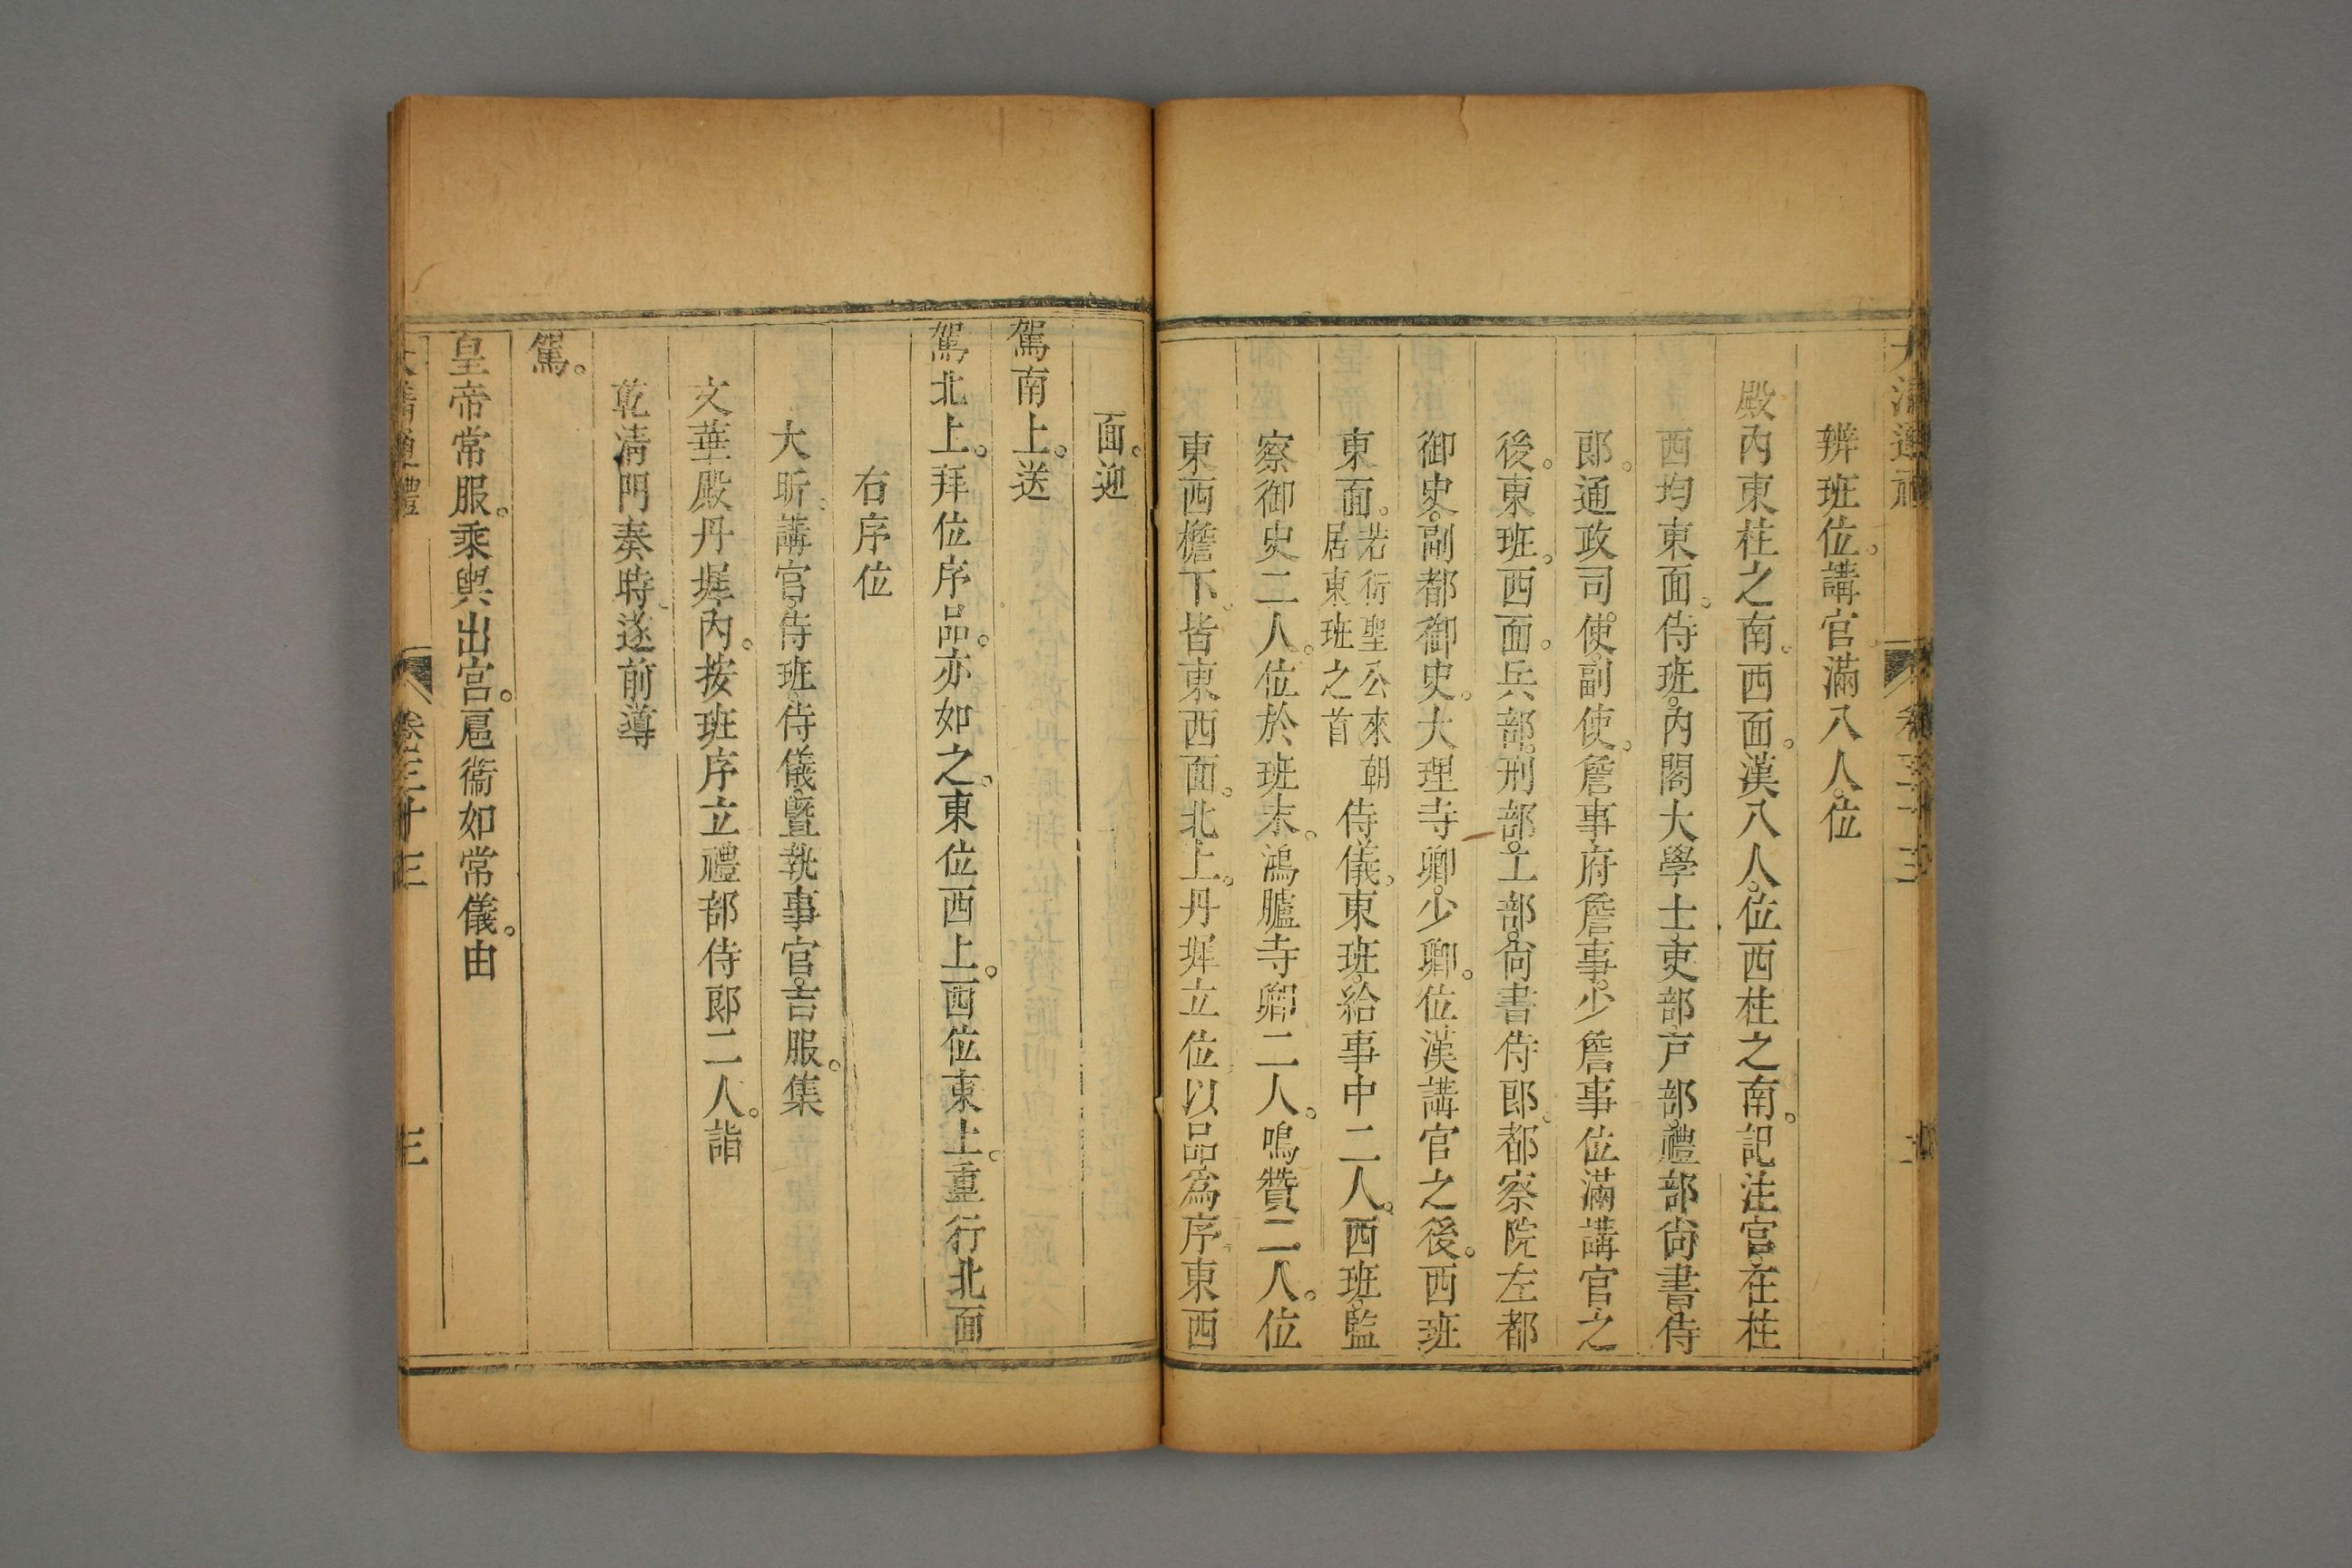 辨班位。講官滿八人。位
殿內東柱之南。西面。漢八人。位西柱之南。記注官。在柱
西均東面。侍班。內閣大學士吏部戶部。禮部尙書侍
郞。通政司。使。副使。詹事府詹事。少詹事位滿講官之
後。東班。西面。兵部。刑部。工部。尙書侍郞。都察院左都
御史。副都御史。大理寺卿。少卿。位漢講官之後。西班
東面。若衍聖公來朝居東班之首侍儀。東班。給事中二人。西班。監
察御史二人。位於班末。鴻臚寺卿二人。鳴贊二人。位
東西檐下。皆東西面。北上。丹墀立位以品爲序。東西
面。迎
駕南上。送
駕北上。拜位序品。亦如之。東位西上。西位東上。重行北面
右序位
大昕。講官。侍班。侍儀。曁執事官。吉服。集
文華殿丹墀內。按班序立禮部侍郞二人。詣
乾淸門奏時。遂前導
駕。
皇帝常服。乘輿出宮。扈衞如常儀。由
大淸通禮
卷三十三
三